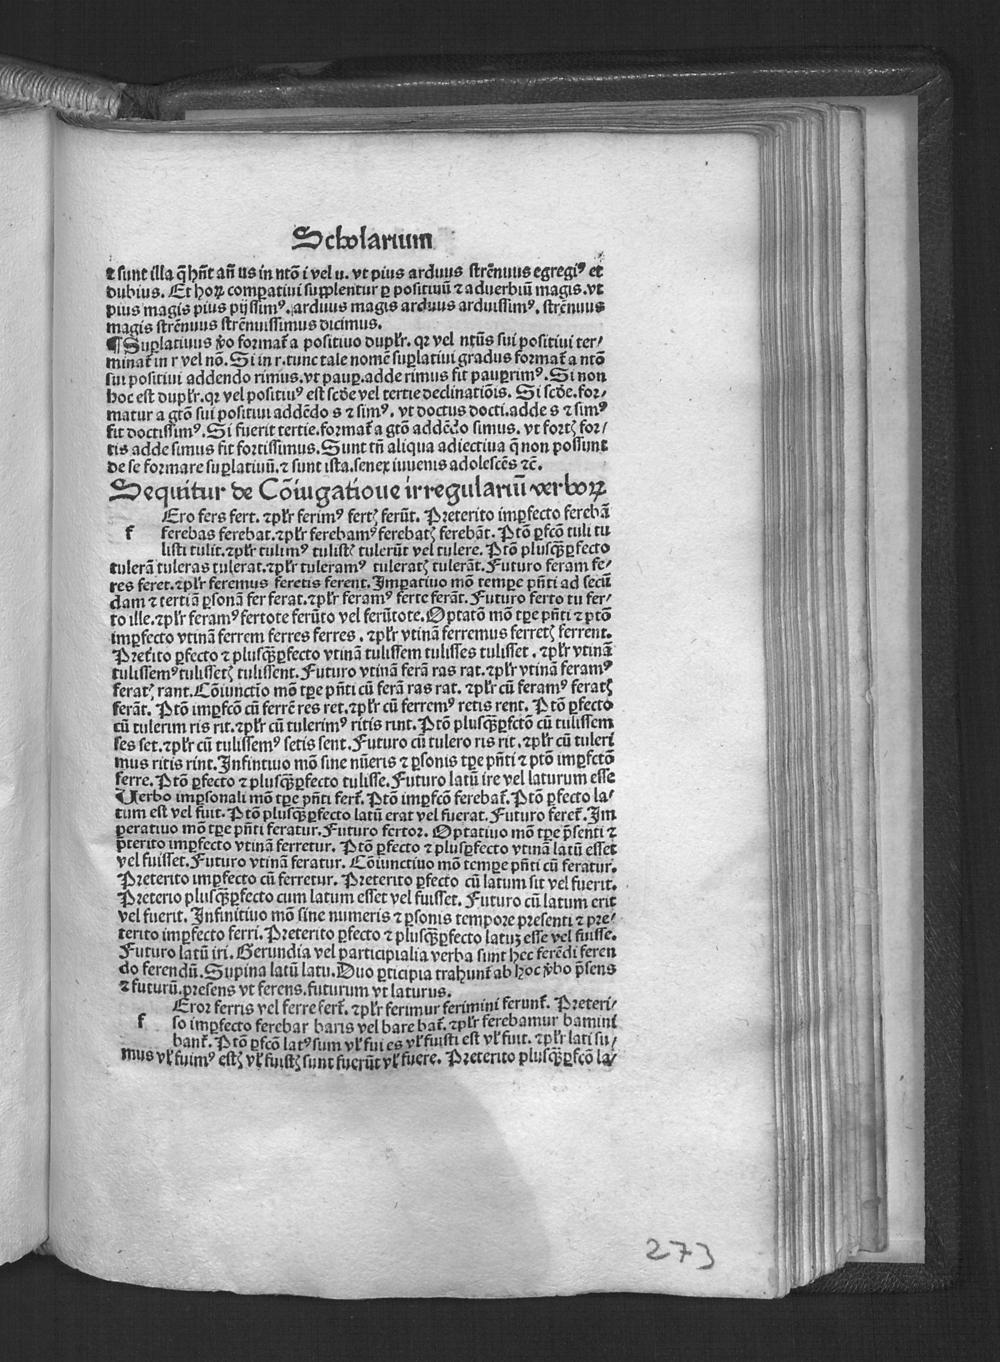 Scholarium
⁊ sunt illa q̄ hn̄t an̄ us in nt̄o i vel u. vt pius arduus strēnuus egregiꝰ et
dubius. Et hoꝝ comꝑatiui supplentur ꝑ positiuū ⁊ aduerbiū magis. vt
pius magis pius pijssimꝰ. arduus magis arduus arduissimꝰ. strēnuus
magis strēnuus strēnuissimus dicimus.
¶ Suꝑlatiuus ṽo format̃ a positiuo duplr̃. qr vel nt̄ūs sui positiui ter⸗
minat̃ in r vel nō. Si in r. tunc tale nomē suꝑlatiui gradus format̃ a nt̄o
sui positiui addendo rimus. vt pauꝑ. adde rimus fit pauꝑrimꝰ. Si non
hoc est duplr̃. qr vel positiuꝰ est scd̄e vel tertie declinatiōis. Si scd̄e. for⸗
matur a gt̄o sui positiui addēdo s ⁊ simꝰ. vt doctus docti. adde s ⁊ simꝰ
fit doctissimꝰ. Si fuerit tertie. format̃ a gt̄o addēdo simus. vt fortꝭ for⸗
tis adde simus fit fortissimus. Sunt tn̄ aliqua adiectiua q̄ non possunt
de se formare suꝑlatiuū. ⁊ sunt ista. senex iuuenis adolescēs ⁊c̄.
Sequitur de Cōiugatioue irregulariū verboꝝ
Ero fers fert. ⁊plr̃ ferimꝰ fertꝭ ferūt. Preterito imꝑfecto ferebā
f ferebas ferebat. ⁊plr̃ ferebamꝰ ferebatꝭ ferebāt. Pt̄o ꝑfc̄o tuli tu
listi tulit. ⁊plr̃ tulimꝰ tulistꝭ tulerūt vel tulere. Pt̄o plusq̄ꝑfecto
tulerā tuleras tulerat. ⁊plr̃ tuleramꝰ tuleratꝭ tulerāt. Futuro feram fe⸗
res feret. ⁊plr̃ feremus feretis ferent. Imꝑatiuo mō temꝑe pn̄ti ad secū
dam ⁊ tertiā ꝑsonā fer ferat. ⁊plr̃ feramꝰ ferte ferāt. Futuro ferto tu fer⸗
to ille. ⁊plr̃ feramꝰ fertote ferūto vel ferūtote. Optatō mō tꝑe pn̄ti ⁊ pt̄o
imꝑfecto vtinā ferrem ferres ferres . ⁊plr̃ vtinā ferremus ferretꝭ ferrent.
Pret̃ito ꝑfecto ⁊ plusq̄ꝑfecto vtinā tulissem tulisses tulisset . ⁊plr̃ vtinā
tulissemꝰ tulissetꝭ tulissent. Futuro vtinā ferā ras rat. ⁊plr̃ vtinā feramꝰ
feratꝭ rant. Cōiunctio mō tꝑe pn̄ti cū ferā ras rat. ⁊plr̃ cū feramꝰ feratꝭ
ferāt. Pt̄o imꝑfc̄o cū ferrē res ret. ⁊plr̃ cū ferremꝰ retis rent. Pt̄o ꝑfecto
cū tulerim ris rit. ⁊plr̃ cū tulerimꝰ ritis rint. Pt̄o plusq̄ꝑfct̄o cū tulissem
ses set. ⁊plr̃ cū tulissemꝰ setis sent. Futuro cū tulero ris rit . ⁊plr̃ cū tuleri
mus ritis rint. Infintiuo mō sine nūeris ⁊ ꝑsonis tꝑe pn̄ti ⁊ pt̄o imꝑfct̄o
ferre. Pt̄o ꝑfecto ⁊ plusq̄ꝑfecto tulisse. Futuro latū ire vel laturum esse
Verbo imꝑsonali mō tꝑe pn̄ti fert̃. Pt̄o imꝑfc̄o ferebat̃. Pt̄o ꝑfecto la⸗
tum est vel fuit. Pt̄o plusq̄ꝑfecto latū erat vel fuerat. Futuro feret̃. Im
ꝑeratiuo mō tꝑe pn̄ti feratur. Futuro fertor. Optatiuo mō tꝑe p̄senti ⁊
p̄terito imꝑfecto vtinā ferretur. Pt̄o ꝑfecto ⁊ plusꝑfecto vtinā latū esset
vel fuisset. Futuro vtinā feratur. Cōiunctiuo mō tempꝑe pn̄ti cū feratur.
Preterito imꝑfecto cū ferretur. Preterito ꝑfecto cū latum sit vel fuerit.
Preterio plusq̄ꝑfecto cum latum esset vel fuisset. Futuro cū latum erit
vel fuerit. Infinitiuo mō sine numeris ⁊ ꝑsonis tempore presenti ⁊ pre⸗
terito imꝑfecto ferri. Preterito ꝑfecto ⁊ plusq̄ꝑfecto latuꝫ esse vel fuisse.
Futuro latū iri. Gerundia vel participialia verba sunt hec ferēdi feren
do ferendū. Supina latū latu. Duo ꝑticipia trahunt̃ ab hoc ṽbo p̄sens
⁊ futurū. presens vt ferens. futurum vt laturus.
Eror ferris vel ferre fert̃. ⁊plr̃ ferimur ferimini ferunt̃. Preteri⸗
f so imꝑfecto ferebar baris vel bare bat̃. ⁊plr̃ ferebamur bamini
bant̃. Pt̄o ꝑfc̄o latꝰ sum vl̃ fui es vl̃ fuisti est vl̃ fuit. ⁊plr̃ lati su⸗
mus vl̃ fuimꝰ estꝭ vl̃ fuistꝭ sunt fuerūt vl̃ fuere. Preterito plusq̄ꝑfc̄o la⸗
273